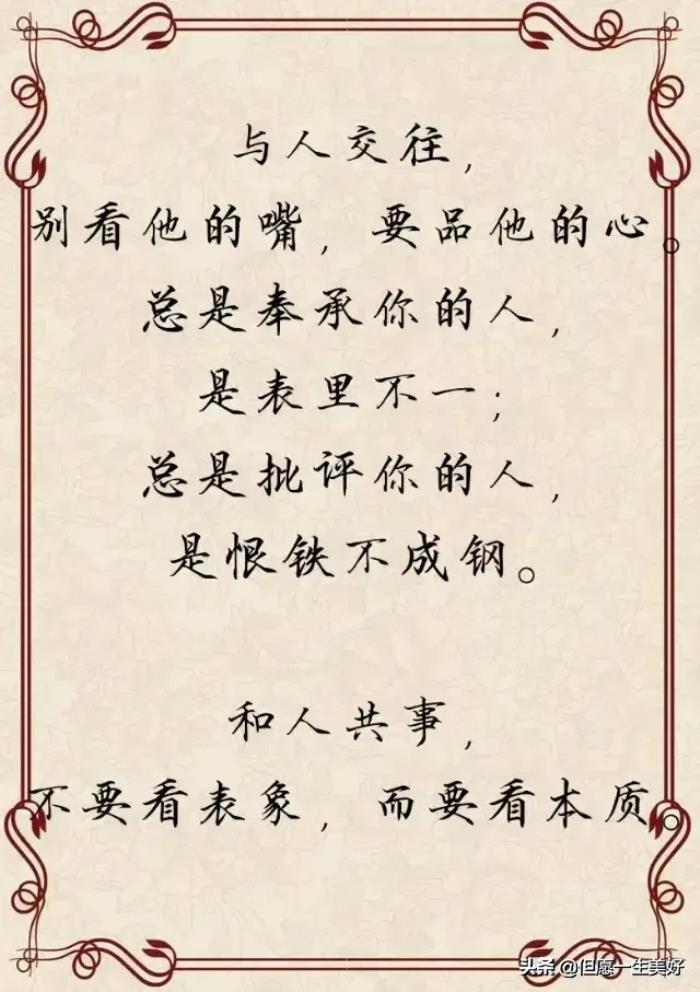 与人交往，
别看他的嘴，要品他的心。
总是奉承你的人，
是表里不一；
总是批评你的人，
是恨铁不成钢。
和人共事，
不要看表象，而要看本质。
头条 @但愿一生美好